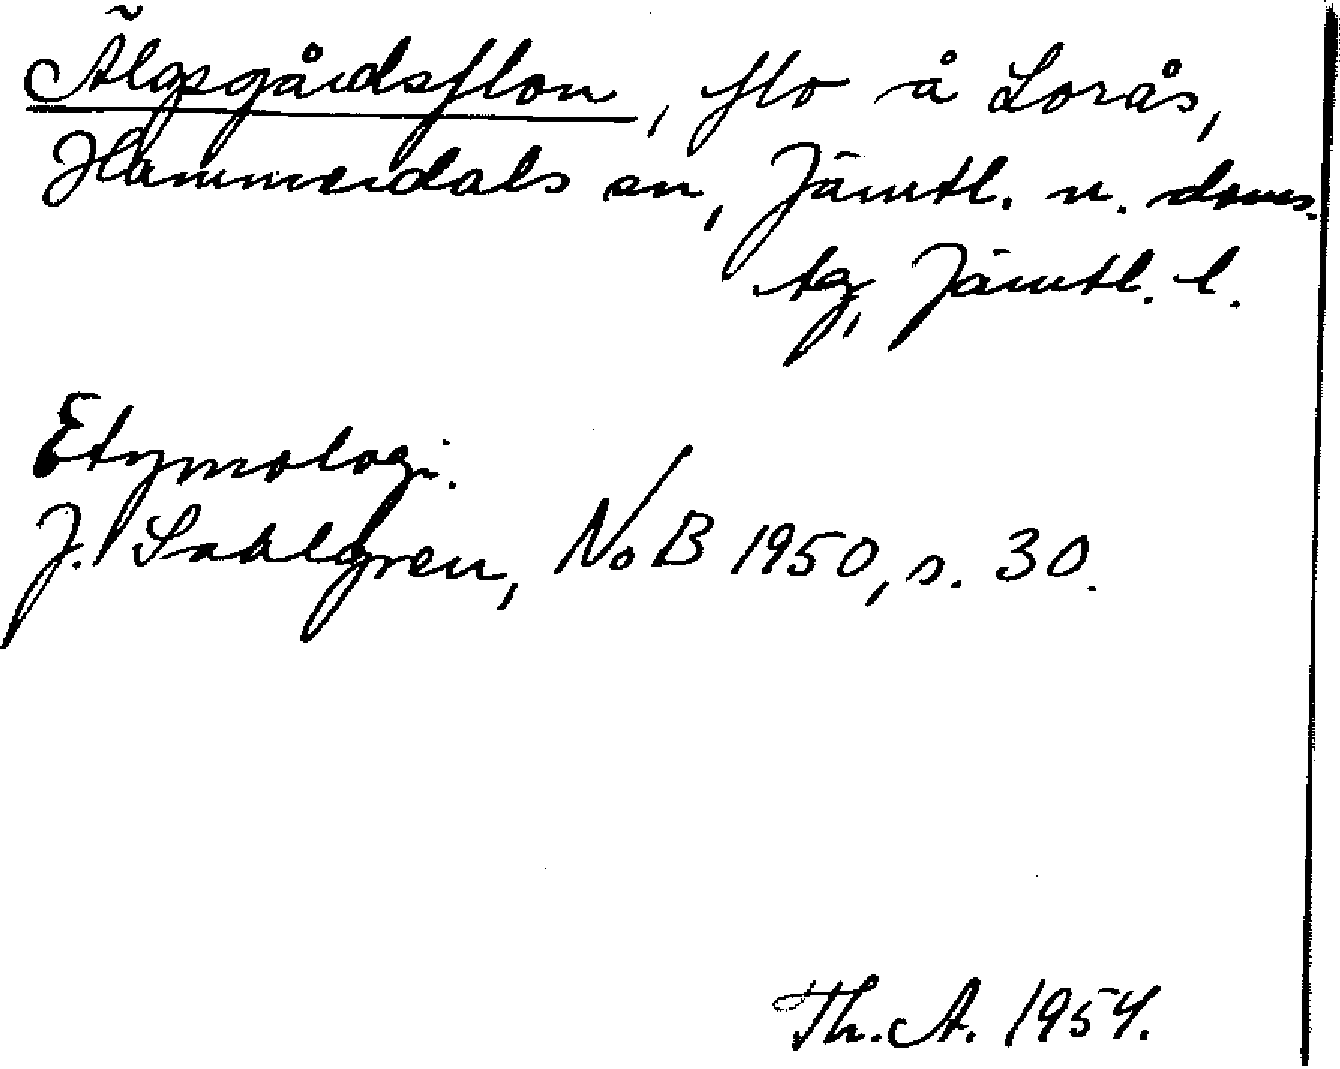 Älgsgårdsflon, flo å Lorås,
Hammerdals sn, Jämtl. n. doms.
tg, Jämtl. l.
Etymologi.
J. Sahlgren, NoB 1950, s. 30.
Th. A. 1954.